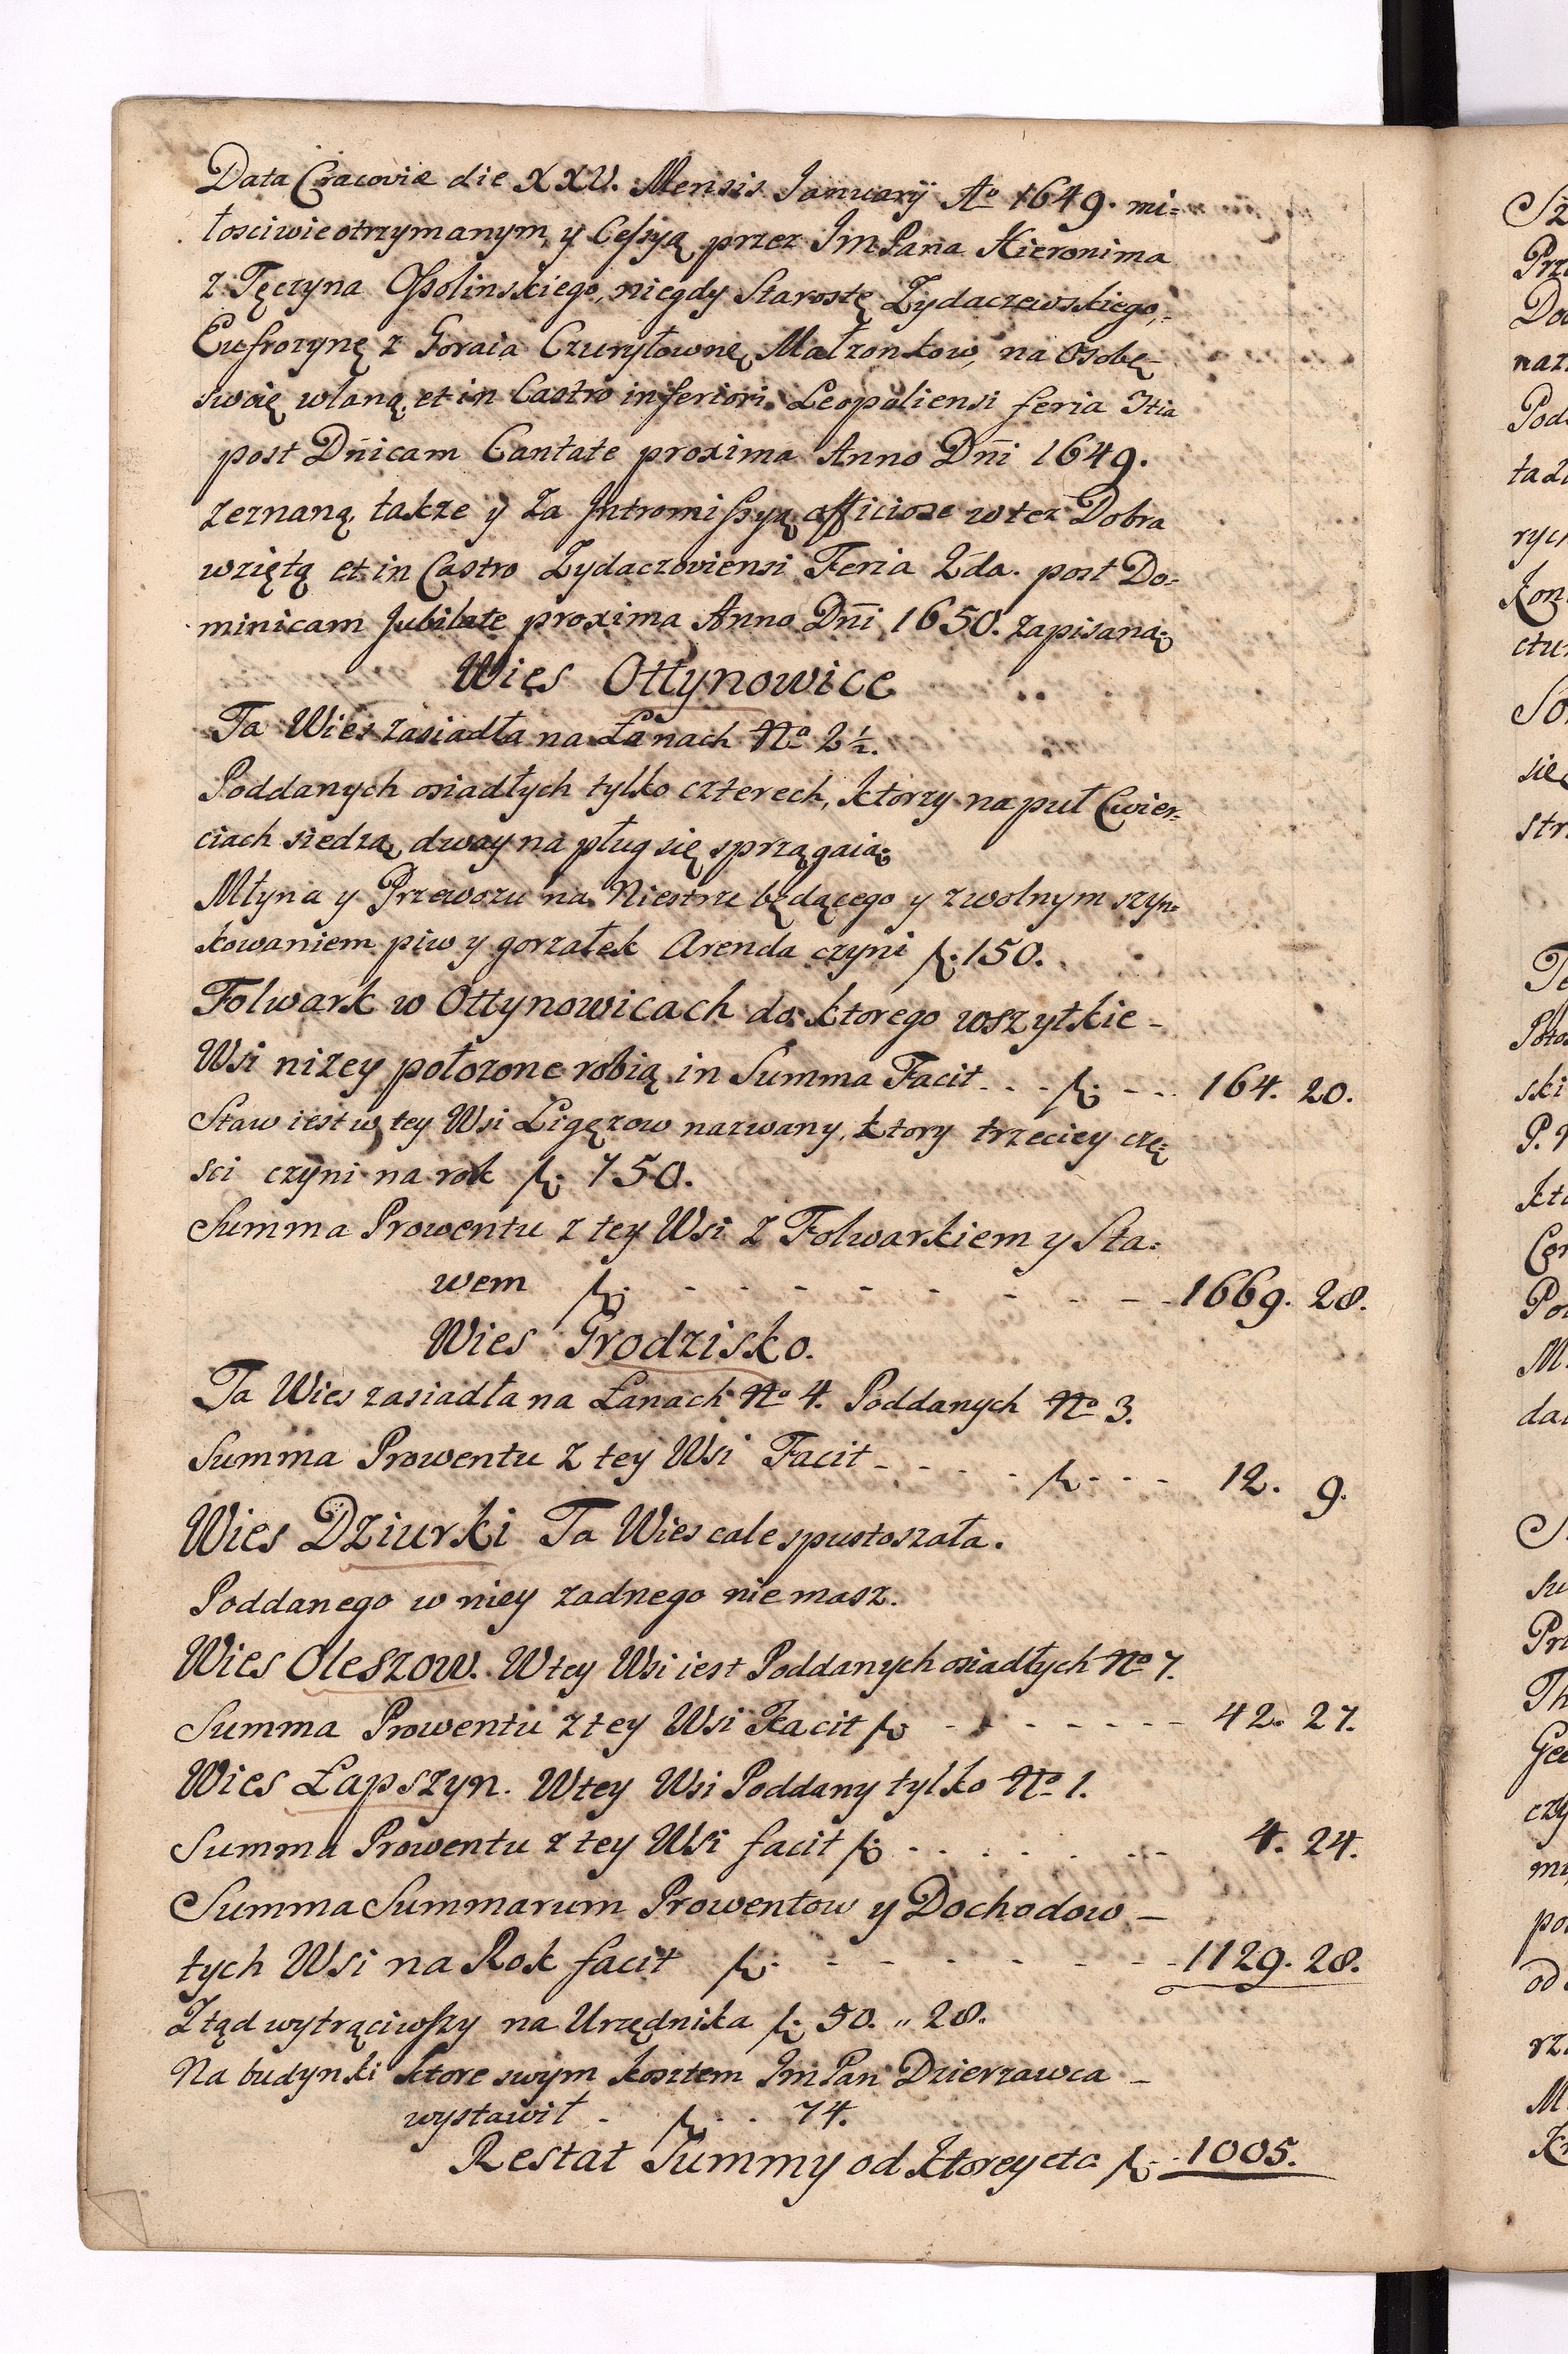 Data Cracoviæ die XXV. Mensis Januarij Ao 1649. mi=
łosciwie otrzymanym, y Cessyą przez JmPana Hieronima
z Tęczyna Ossolinskiego, niegdy Starostę Zydaczewskiego,
Eufrozynę z Goraia Czuryłownę, Małzonkow, na Osobę
swoię wlaną, et in Castro inferiori Leopoliensi feria 3tia
post Dn̄icam Cantate proxima Anno Dn̄i 1649.
zeznaną, takze y za Intromissyą officiose w tez Dobra
wziętą et in Castro Zydaczoviensi Feria 2da. post Do=
minicam Jubilate proxima Anno Dn̄i 1650. zapisaną.
Wies Ottynowice
Ta Wies zasiadła na Łanach No 2½.
Poddanych osiadłych tylko czterech, ktorzy na puł Cwier=
ciach siedzą, dway na pług się sprzągaią.
Młyna y Przewozu na Niestrze będącego y z wolnym szyn=
kowaniem piw y gorzałek Arenda czyni f. 150.
Folwark w Ottynowicach do ktorego wszytkie -
Wsi nizey połozone robią in Summa Facit - - - f. - - - 164. 20.
Staw iest w tey Wsi Ligęzow nazwany, ktory trzeciey czę=
sci czyni na rok f. 750.
Summa Prowentu z tey Wsi z Folwarkiem y Sta=
wem f. - - - - - - - - 1669. 28.
Wies Grodzisko.
Ta Wies zasiadła na Łanach No 4. Poddanych No 3.
Summa Prowentu z tey Wsi Facit - - - - f. - - - 12. 9.
Wies Dziurki Ta Wies cale spustoszała.
Poddanego w niey zadnego nie masz.
Wies Oleszow. W tey Wsi iest Poddanych osiadłych No 7.
Summa Prowentu z tey Wsi Facit f. - - - - - - - 42. 27.
Wies Łapszyn. W tey Wsi Poddany tylko No 1.
Summa Prowentu z tey Wsi facit f. - - - - - - - 4. 24.
Summa Summarum Prowentow y Dochodow -
tych Wsi na Rok facit f. - - - - - - - 1129. 28.
Ztąd wytrąciwszy na Urzędnika f. 50. " 28.
Na budynki ktore swym kosztem Jm Pan Dzierzawca -
wystawił - f. - - 74.
Restat Summy od ktorey etc f. - 1005.